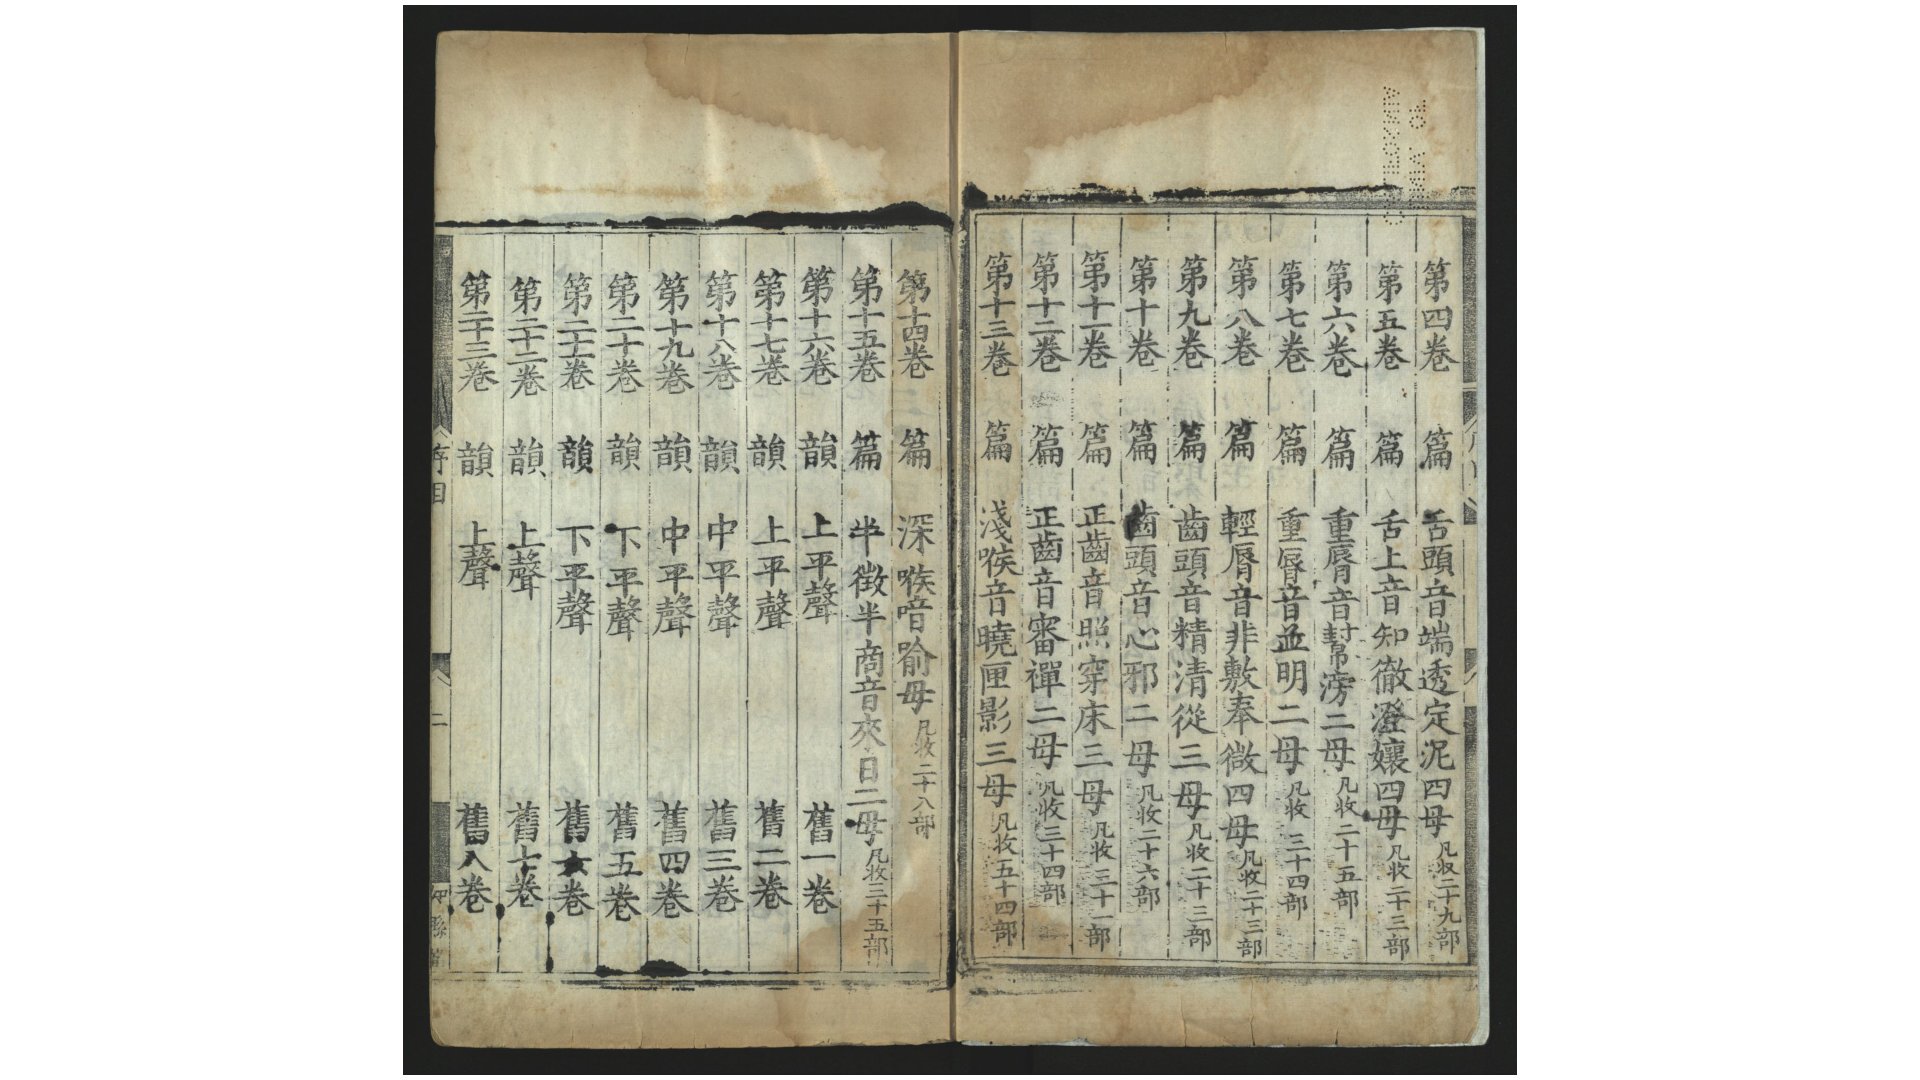 第四卷 篇 舌頭音端透定泥四母凡収二十九部
第五卷 篇 舌上音知徹澄孃四母凡收二十三部
第六卷 篇 重脣音幫滂二母凡收二十五部
第七卷 篇 重脣音並明二母凡收三十四部
第八卷 篇 輕脣音非敷奉微四母凡收二十三部
第九卷 篇 齒頭音精清從三母凡收二十三部
第十卷 篇 齒頭音心邪二母凡收二十六部
第十一卷 篇 正齒音照穿床三母凡收三十一部
第十二卷 篇 正齒音審禪二母凡收三十四部
第十三卷 篇 淺喉音曉匣影三母凡收五十四部
第十四卷 篇 深喉音喻母凡收二十八部
第十五卷 篇 半徵半商音來日二母凡收三十五部
第十六卷 韻 上平聲 舊一卷
第十七卷 韻 上平聲 舊二卷
第十八卷 韻 中平聲 舊三卷
第十九卷 韻 中平聲 舊四卷
第二十卷 韻 下平聲 舊五卷
第二十一卷 韻 下平聲 舊六卷
第二十二卷 韻 上聲 舊七卷
第二十三卷 韻 上聲 舊八卷
序目 二